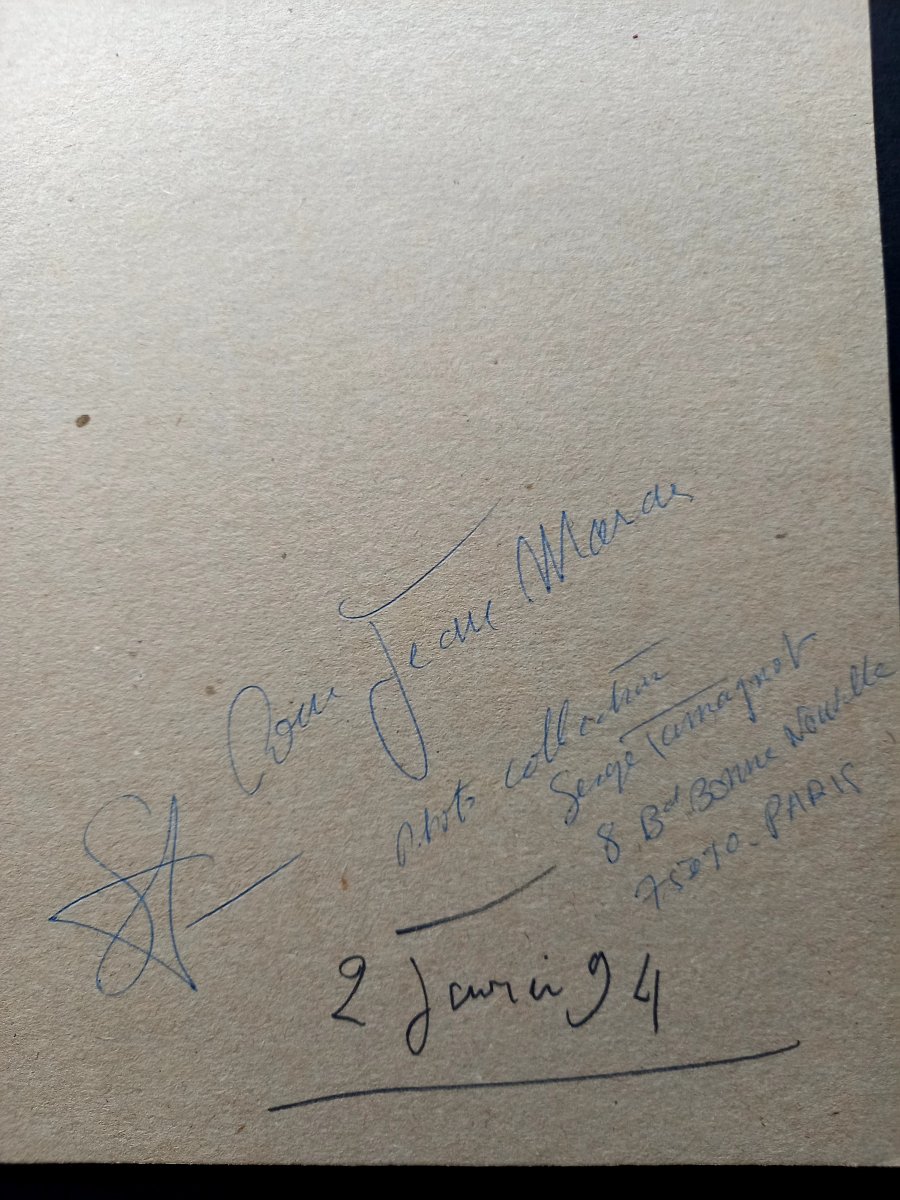 Pour Jean Marais
Photo collection
Serge Tamagnot
8 Bd Bonne Nouvelle
75010. PARIS
ST
2 Janvier 94